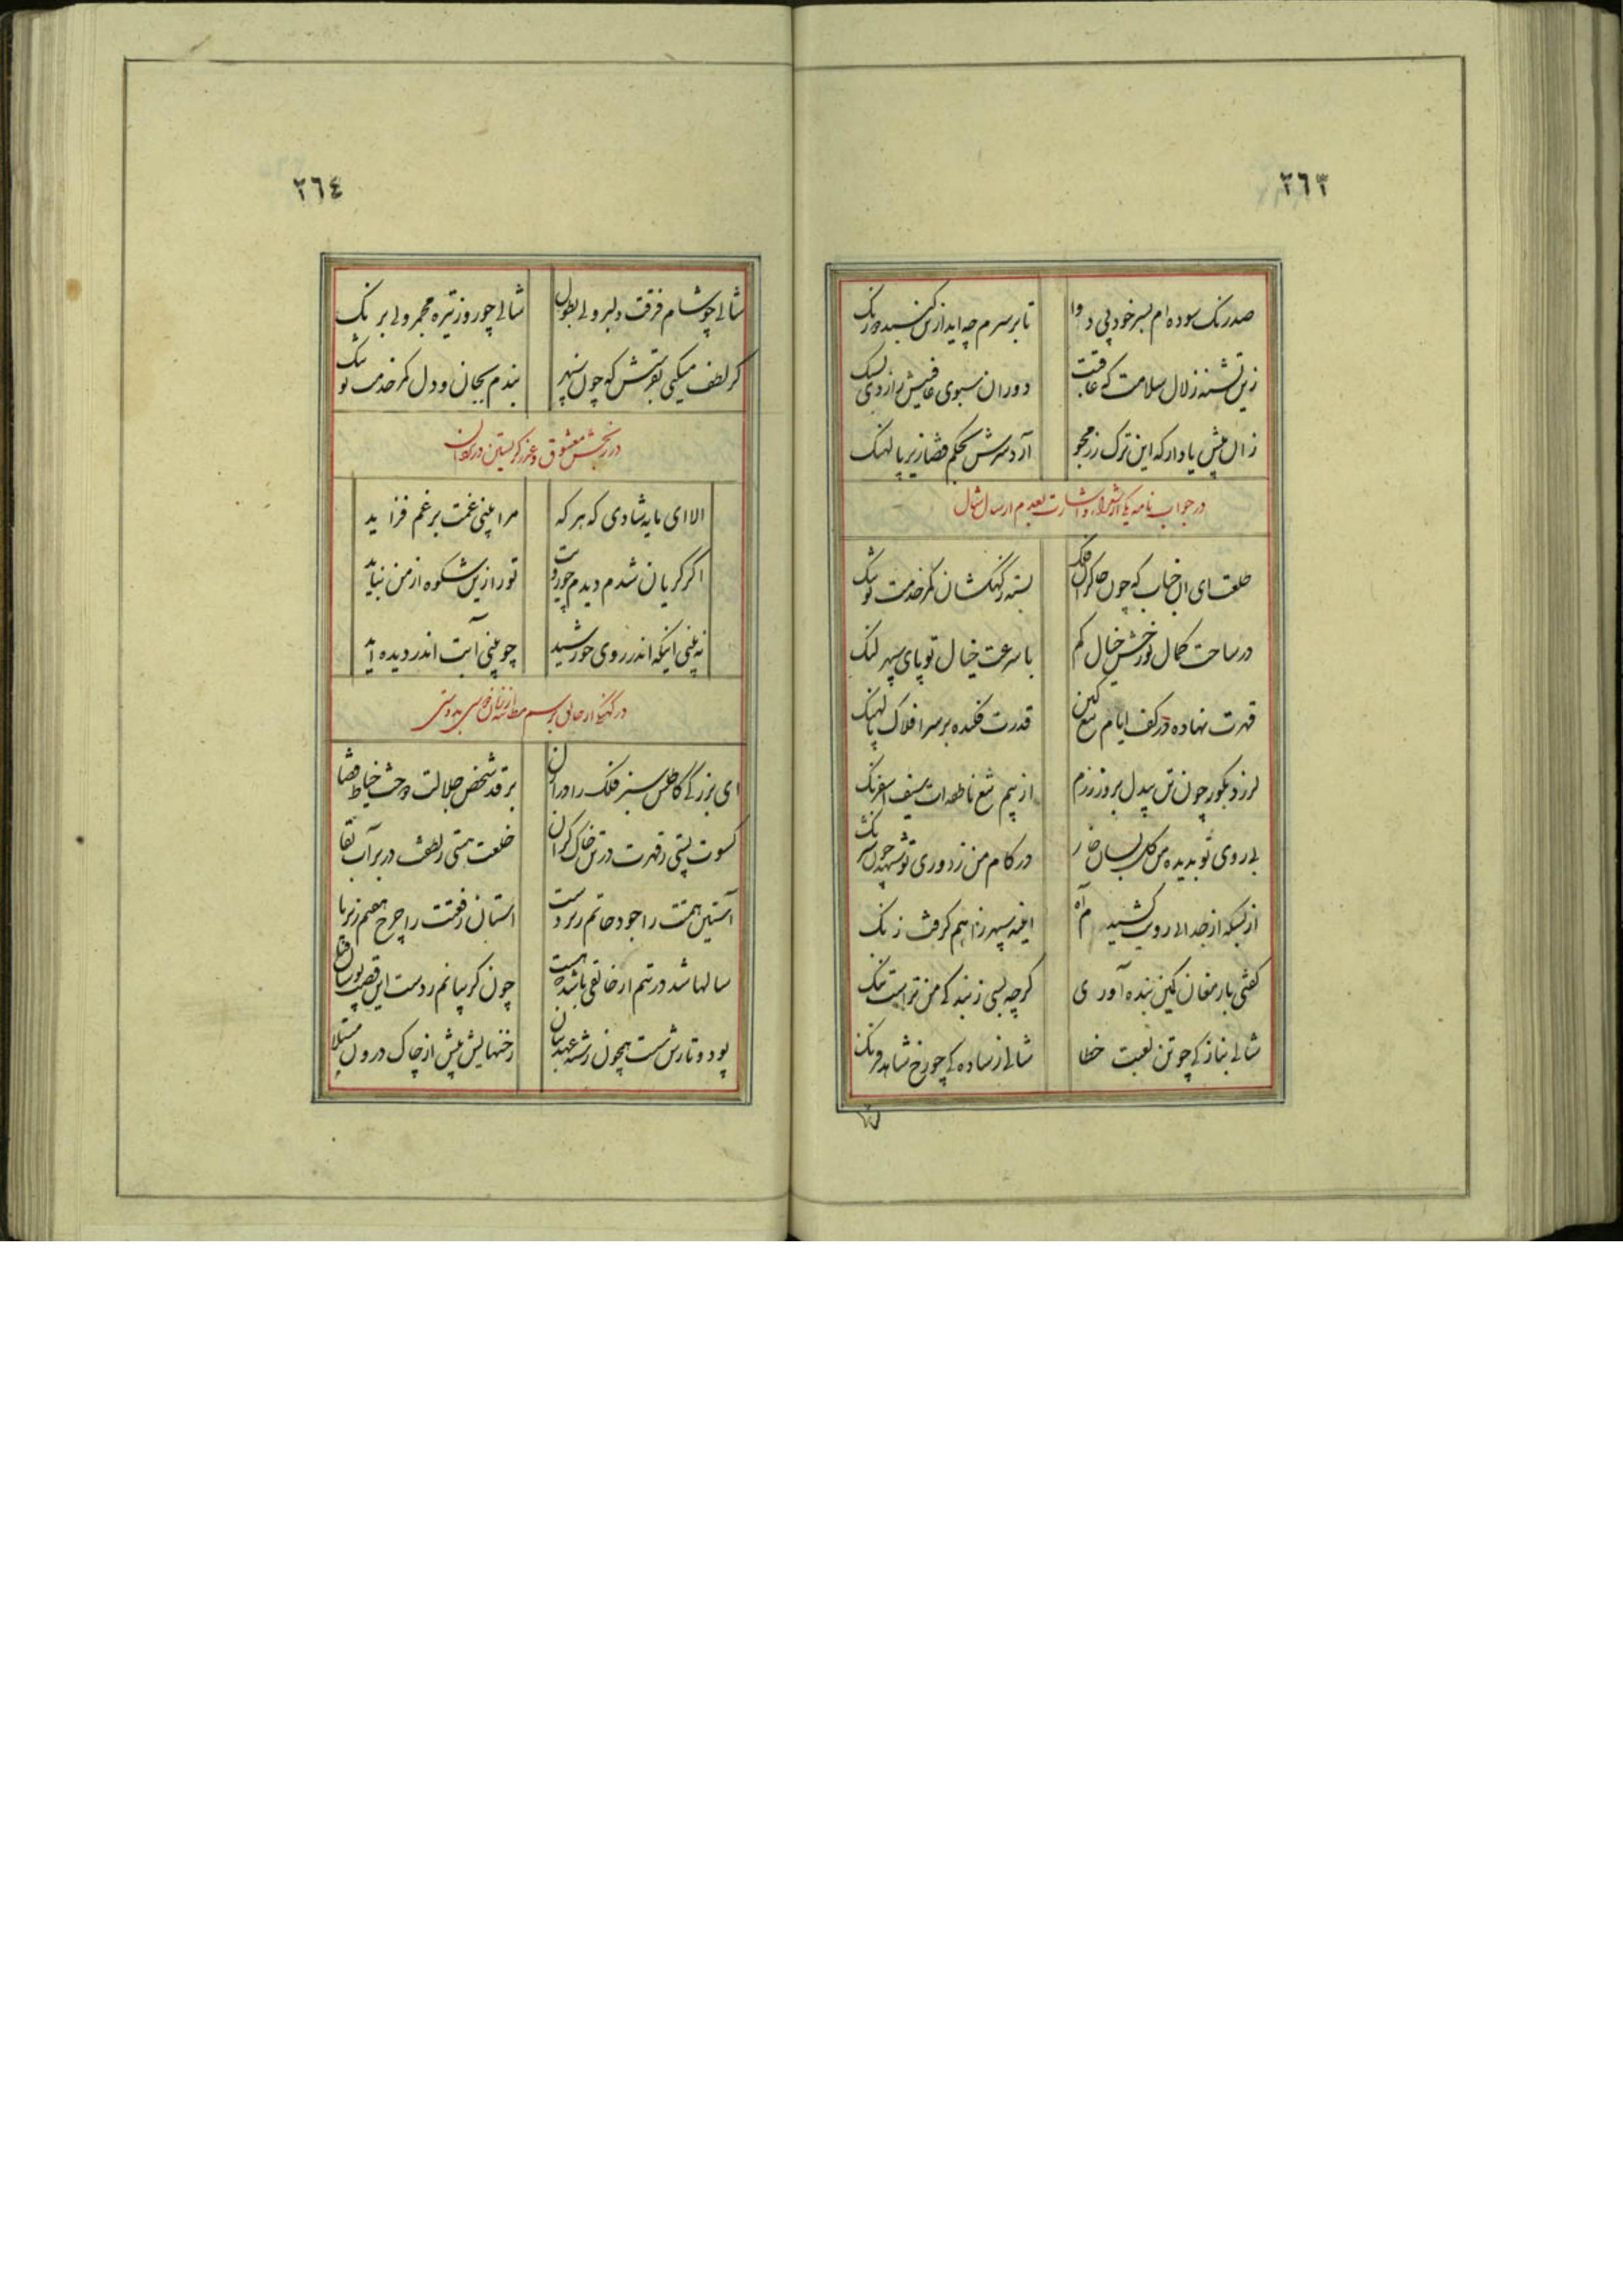 ٢٦٣
صد رنگ سوده ام بسر خود پی دوا
تا بر سرم چه آید ازین گنبد دو رنگ
زین تشنه زلال سلامت که عاقبت
دوران سبوی عافیتش زد
زان پیش یاد ار که این ترک رزمجو
آرد سرش بحکم قضا زیر پالهنگ
در جواب نامه یکی از شعرا و اشارت بعدم ارسال شال
ای جناب که چون چاکران فلک
بسته کمر خدمت تو تنگ
در ساحت کمال تو رخش خیال کم
با سرعت خیال تو پای سپهر لنگ
قهرت نهاده در کف ایام تیغ کین
قدرت فکنده بر سر افلاک پالهنگ
لرزد بگور چون تن بیدل بروز رزم
از بیم تیغ ناطقه ات سیف اسفرنگ
بی روی تو بدیده من گل بسان خار
در کام من ز دوری تو شهد چون شرنگ
از بسکه از جدایی رویت کشیدم آه
آینه سپهر ز آهم گرفت زنگ
گفتی بارمغان کین بنده آوری
گرچه بسی ز بندگی من تراست ننگ
شالی بنازکی چو تن لعبت خطا
شالی ز سادگی چو رخ شاهد فرنگ
٢٦٤
شالی چو شام فرقت دلبر ولی بطول
شالی چو روز تیره مجمر ولی برنگ
گر لطف میکنی بفرستش که چون سپهر
بندم بجان و دل کمر خدمت تو تنگ
در رنجش معشوق و عذر گریستن در
الا ای مایه شادی که هر که
مرا بینی غمت بر غم فزاید
اگر گریان شدم دیدم چو رویت
تو را زین شکوه از من نباید
نه بینی اینکه اندر روی خورشید
چو بینی آبت اندر دیده آید
ای بزرگی کاطلس سبز فلک را دوران
بر قد شخص جلالت دوخت خیاط قضا
کسوت پستی ز قهرت در تن خاک گران
خلعت هستی ز لطفت در بر آب بقا
آستین همتت را جود حاتم زیر دست
آستان رفعتت را چرخ هفتم زیر پا
سالها شد در تنم
چون گریبانم ز دست این
پود و تارش سست همچون رشته عهد بتان
رخنهایش بیش از چاک درون مبتلا